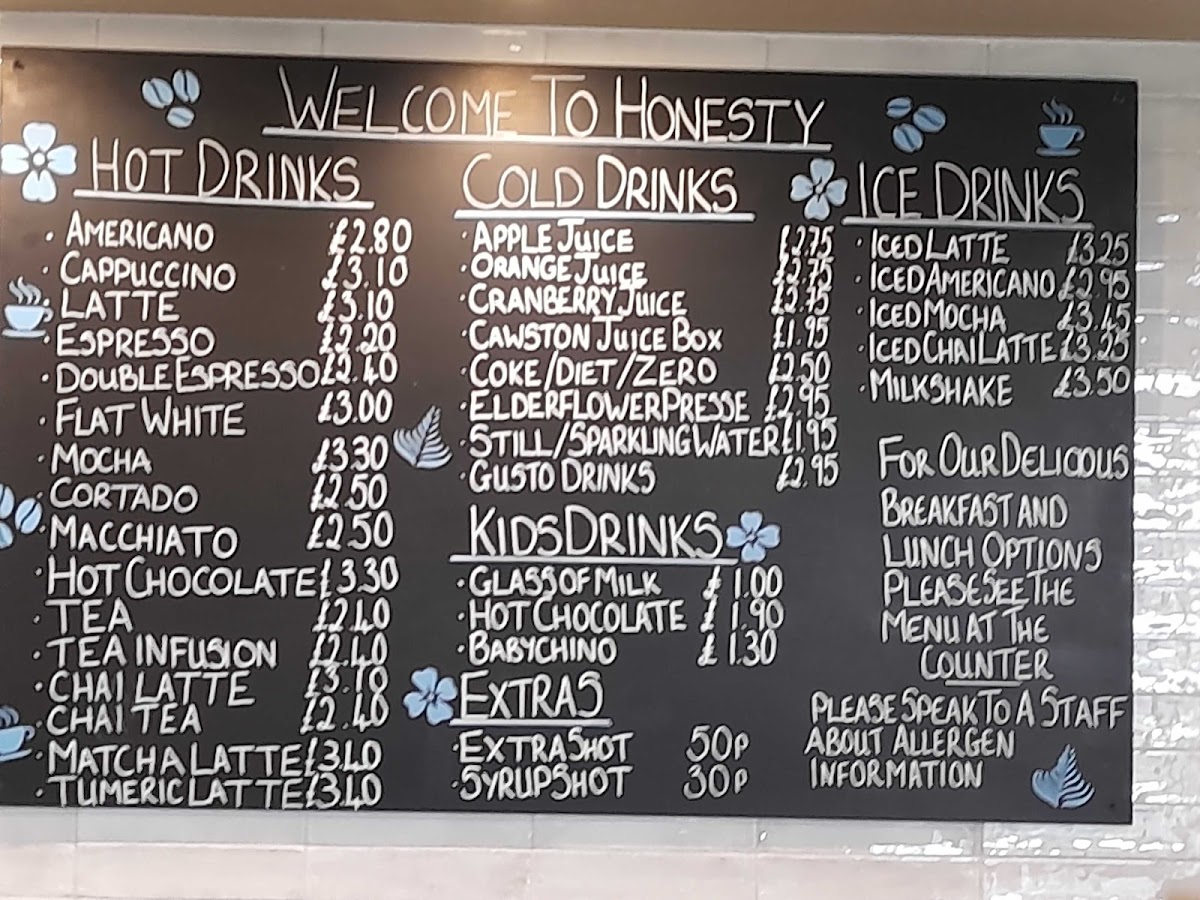 WELCOME TO HONESTY
HOT DRINKS
· AMERICANO £2.80
· CAPPUCCINO £3.10
· LATTE £3.10
· ESPRESSO £2.20
· DOUBLE ESPRESSO £2.40
· FLAT WHITE £3.00
· MOCHA £3.30
· CORTADO £2.50
· MACCHIATO £2.50
· HOT CHOCOLATE £3.30
· TEA £2.40
· TEA INFUSION £2.40
· CHAI LATTE £3.10
· CHAI TEA £2.40
· MATCHA LATTE £3.40
· TUMERIC LATTE £3.40
COLD DRINKS
· APPLE JUICE £2.75
· ORANGE JUICE £2.75
· CRANBERRY JUICE £2.75
· CAWSTON JUICE BOX £1.95
· COKE/DIET/ZERO £2.50
· ELDERFLOWER PRESSE £2.95
· STILL/SPARKLING WATER £1.95
· GUSTO DRINKS £2.95
KIDS DRINKS
· GLASS OF MILK £1.00
· HOT CHOCOLATE £1.90
· BABYCHINO £1.30
EXTRAS
· EXTRA SHOT 50P
· SYRUP SHOT 30P
ICE DRINKS
· ICED LATTE £3.25
· ICED AMERICANO £2.95
· ICED MOCHA £3.45
· ICED CHAI LATTE £3.25
· MILKSHAKE £3.50
FOR OUR DELICIOUS
BREAKFAST AND
LUNCH OPTIONS
PLEASE SEE THE
MENU AT THE
COUNTER
PLEASE SPEAK TO A STAFF
ABOUT ALLERGEN
INFORMATION